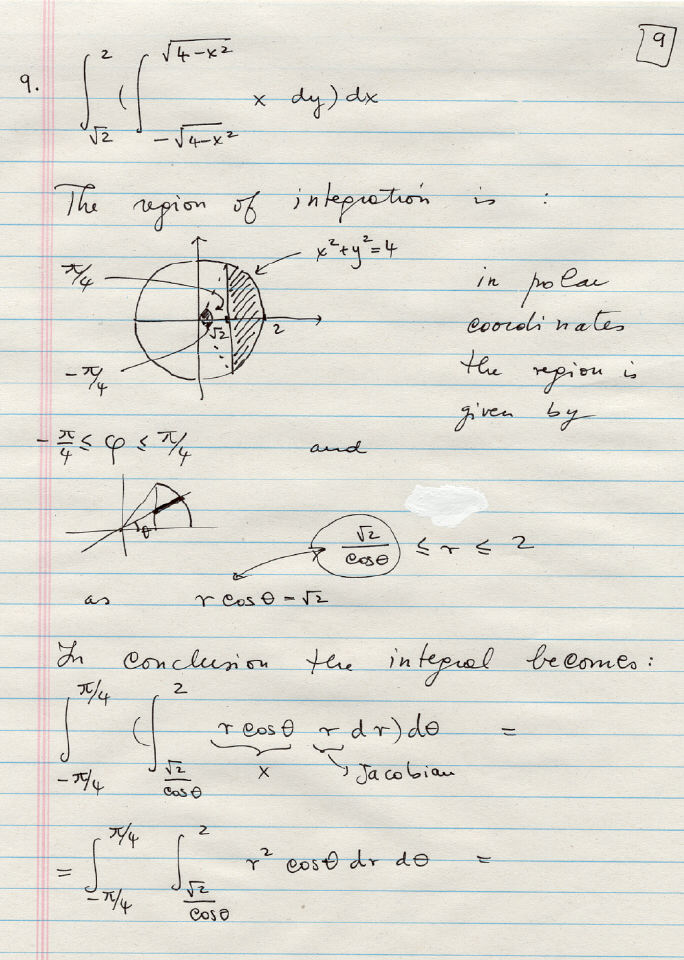 9
9. ∫_{√2}^{2} ( ∫_{-√(4-x²)}^{√(4-x²)} x dy) dx
The region of integration is :
x²+y²=4
π/4
√2 2
-π/4
in polar
coordinates
the region is
given by
-π/4 ≤ φ ≤ π/4 and
θ
√2/cosθ ≤ r ≤ 2
as r cosθ = √2
In conclusion the integral becomes:
∫_{-π/4}^{π/4} ( ∫_{√2/cosθ}^{2} r cosθ r dr) dθ =
x Jacobian
= ∫_{-π/4}^{π/4} ∫_{√2/cosθ}^{2} r² cosθ dr dθ =